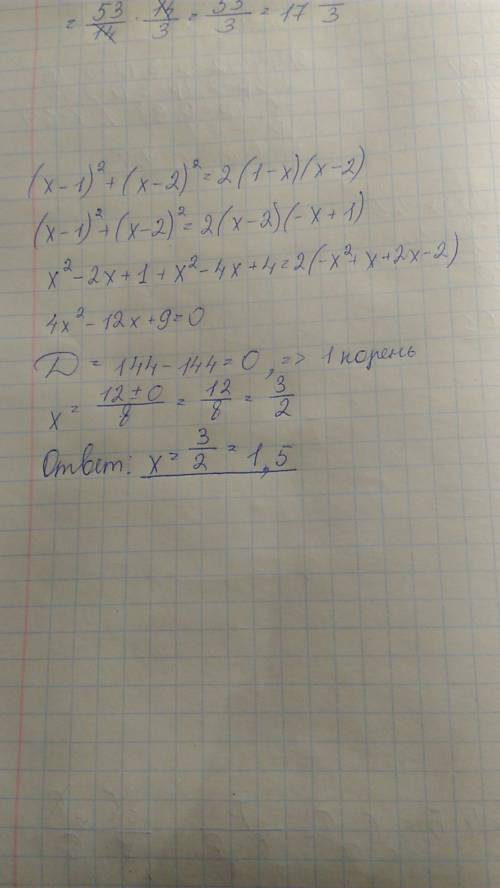 = 53/14 · 14/3 = 53/3 = 17 /3
(x-1)² + (x-2)² = 2(1-x)(x-2)
(x-1)² + (x-2)² = 2(x-2)(-x+1)
x² - 2x + 1 + x² - 4x + 4 = 2(-x² + x + 2x - 2)
4x² - 12x + 9 = 0
D = 144 - 144 = 0, => 1 корень
x = 12 ± 0/8 = 12/8 = 3/2
Ответ: x = 3/2 = 1,5